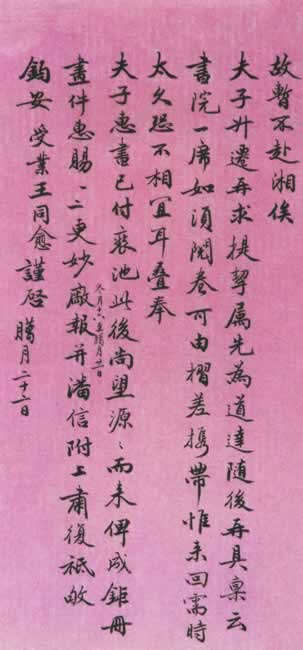 故暫不赴湘俟
夫子升遷再求提挈属先為道達随後再具稟云
書院一席如須閱卷可由摺差携帶惟来回需時
太久恐不相宜耳叠奉
夫子惠書已付裝池此後尚望源〻而来俾成鉅冊
畫件惠賜一二更妙厰報并潘信附上肅復祗敂
冬月六至臘月廿日
鈞安 受業王同愈謹啓 臘月二十二日